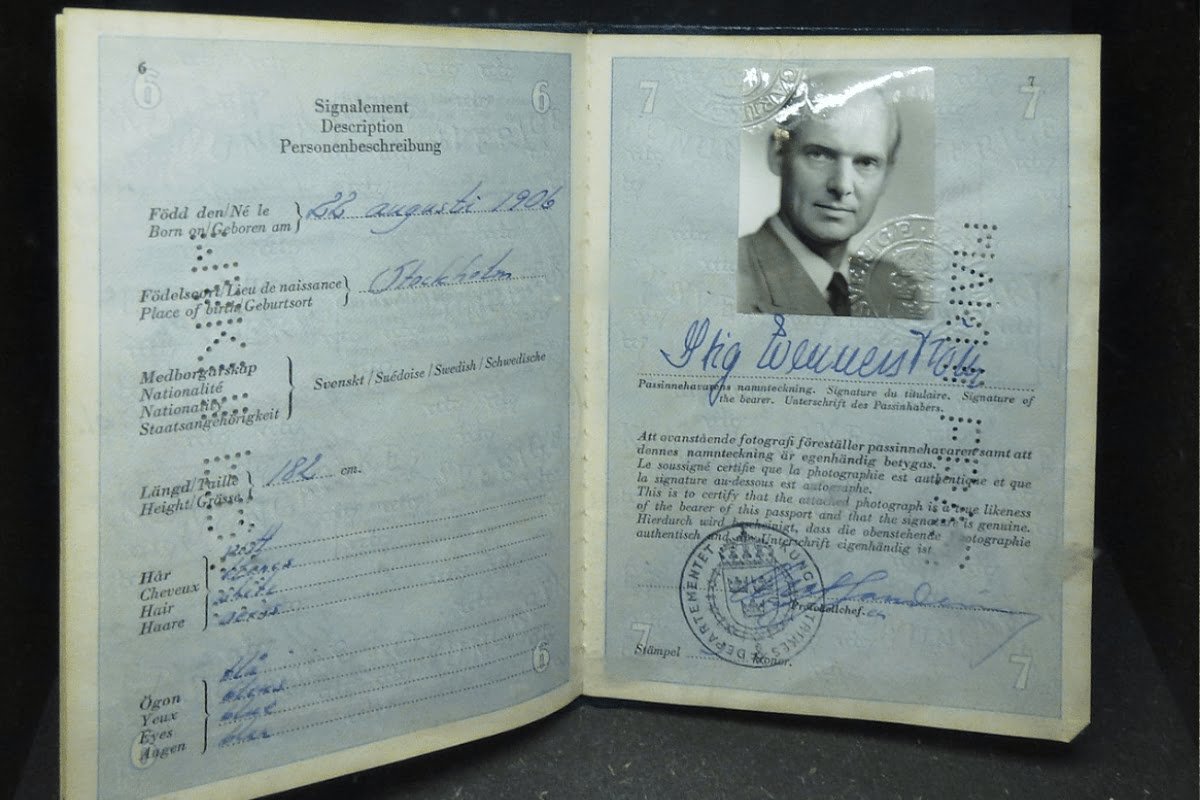 6
6
6
Signalement
Description
Personenbeschreibung
Född den/Né le
Born on/Geboren am
22 augusti 1906
Födelseort/Lieu de naissance
Place of birth/Geburtsort
Stockholm
Medborgarskap
Nationalité
Nationality
Staatsangehörigkeit
Svenskt/Suédoise/Swedish/Schwedische
Längd/Taille
Height/Grösse
182 cm.
Hår
Cheveux
Hair
Haare
Ögon
Yeux
Eyes
Augen
blå
6
6
7
7
7
SVERIGE
Stig Wennerström
Passinnehavarens namnteckning. Signature du titulaire. Signature of
the bearer. Unterschrift des Passinhabers.
Att ovanstående fotografi föreställer passinnehavaren samt att
dennes namnteckning är egenhändig betygas.
Le soussigné certifie que la photographie est authentique et que
la signature au-dessous est autographe.
This is to certify that the attached photograph is a true likeness
of the bearer of this passport and that the signature is genuine.
Hierdurch wird bescheinigt, dass die obenstehende Photographie
authentisch und die Unterschrift eigenhändig ist.
DEPARTEMENTET
Protokollchef.
Stämpel
kronor.
7
7